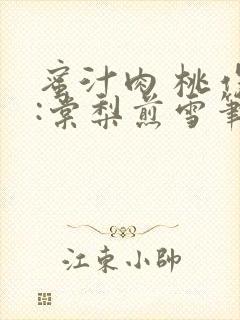 蜜汁肉桃作
:棠梨煎雪筆
江東小帥